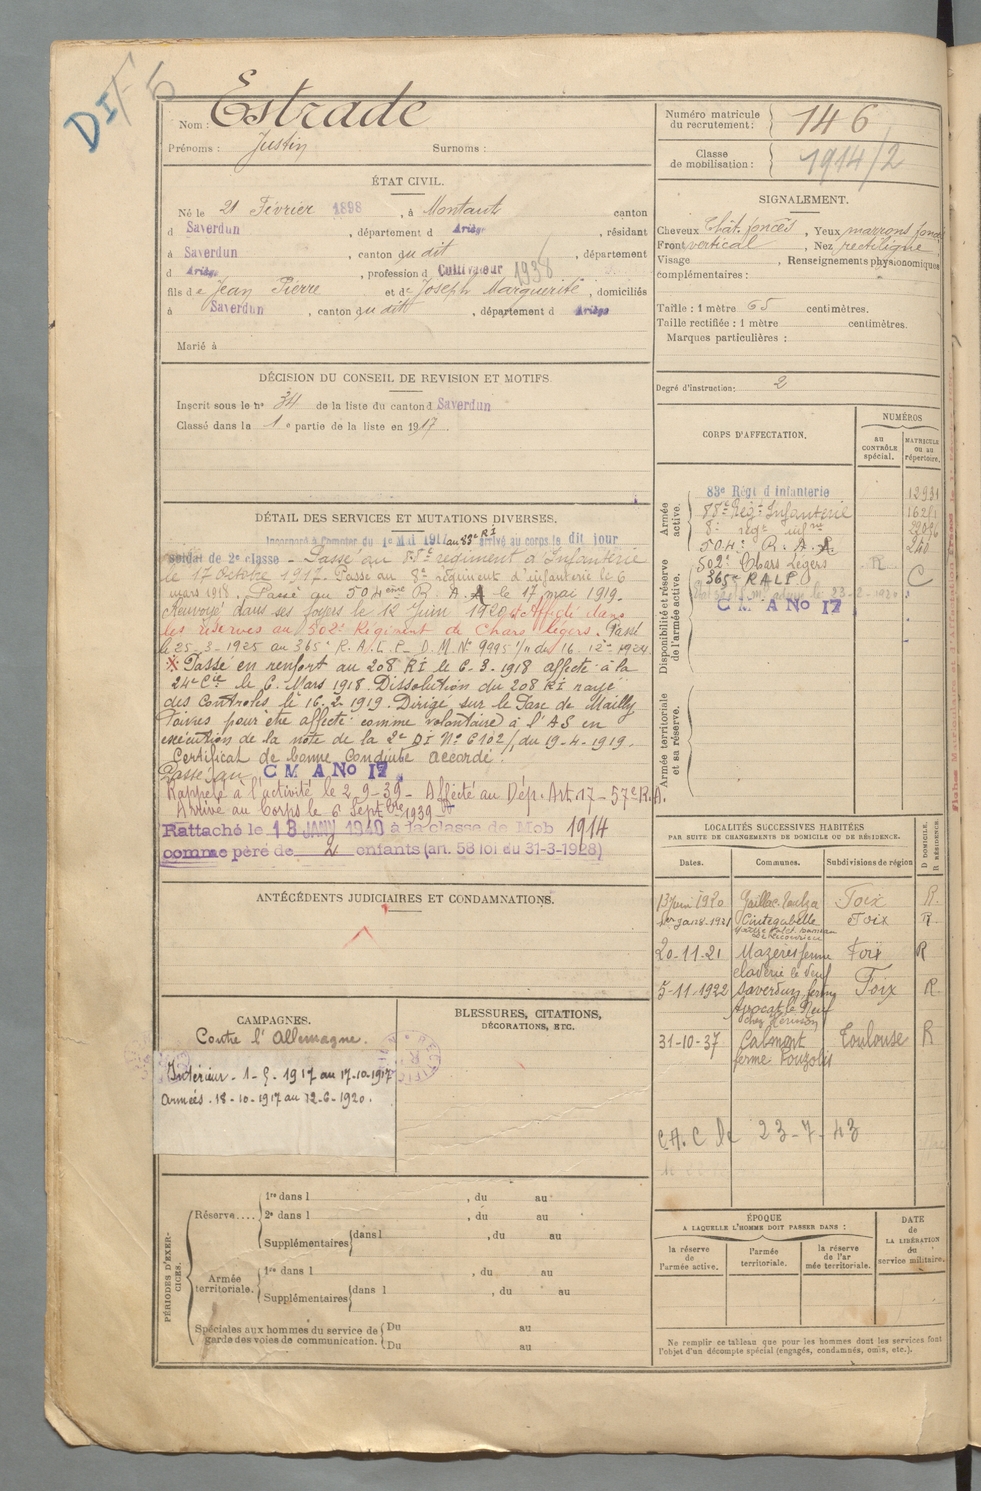 DIF 5
Nom : Estrade
Prénoms : Justin Surnoms :
Numéro matricule du recrutement : 146
Classe de mobilisation : 1914/2
ÉTAT CIVIL.
Né le 21 Février 1898, à Montaut canton
d Saverdun, département d Ariège, résidant
à Saverdun, canton du dit, département
d Ariège, profession d Cultivateur 1938
fils de Jean Pierre et de Joseph Marguerite, domiciliés
à Saverdun, canton du dit, département d Ariège
Marié à
SIGNALEMENT.
Cheveux Chât. foncés, Yeux marrons foncés
Front vertical, Nez rectiligne
Visage , Renseignements physionomiques
complémentaires :
Taille : 1 mètre 65 centimètres.
Taille rectifiée : 1 mètre centimètres.
Marques particulières :
Degré d'instruction : 2
DÉCISION DU CONSEIL DE REVISION ET MOTIFS
Inscrit sous le n° 34 de la liste du canton d Saverdun
Classé dans la 1e partie de la liste en 1917.
DÉTAIL DES SERVICES ET MUTATIONS DIVERSES.
Incorporé à compter du 1er Mai 1917 au 83e RI arrivé au corps le dit jour
soldat de 2e classe - Passé au 88e régiment d'Infanterie
le 17 octobre 1917. Passé au 8e régiment d'infanterie le 6
mars 1918. Passé au 504ème R. A. A le 17 mai 1919.
Renvoyé dans ses foyers le 12 Juin 1920. Affecté dans
les réserves au 502e Régiment de Chars légers. Passé
le 25-3-1925 au 365e R.A.L.P. D.M. N° 9995 1/11 du 16-12-1924.
* Passé en renfort au 208 RI le 6.3.1918 affecté à la
24e Cie le 6. Mars 1918. Dissolution du 208 RI rayé
des contrôles le 16.2 1919. Dirigé sur le de Mailly
Poivres pour être affecté comme volontaire à l'AS en
exécution de la note de la 2e DI N° 6102/, du 19-4-1919.
Certificat de bonne Conduite accordé.
Passé au C M A No 17
Rappelé à l'activité le 2-9-39 - Affecté au Dép. Art. 17 - 57e R.A.
Arrivé au Corps le 6 Septbre 1939
Rattaché le 18 JANV 1940 à la classe de Mob 1914
comme père de 2 enfants (an. 58 loi du 31-3-1928)
CORPS D'AFFECTATION.
NUMÉROS
au CONTRÔLE spécial.
MATRICULE ou au répertoire.
Armée active.
83e Régt d Infanterie 12931
88e Régt Infanterie 16281
8e régt infrie
504e R. A. A 240
Disponibilité et réserve de l'armée active.
502e Chars Légers R
365e R A L P C
C M A No 17
Armée territoriale et sa réserve.
LOCALITÉS SUCCESSIVES HABITÉES
PAR SUITE DE CHANGEMENTS DE DOMICILE OU DE RÉSIDENCE.
Dates. Communes. Subdivisions de région D DOMICILE. R RÉSIDENCE
13 Juin 1920 Gaillac-Toulza Foix R.
1er Janv-1921 Cintegabelle Foix R.
20-11-21 Mazères ferme Foix R
5-11-1922 Saverdun ferme Foix R.
31-10-37 Calmont Toulouse R
ferme Pouzols
C.A.C. de 23-7-43
ANTÉCÉDENTS JUDICIAIRES ET CONDAMNATIONS.
CAMPAGNES.
Contre l'Allemagne.
Intérieur - 1-5-1917 au 17-10-1917
Armées. 18-10-1917 au 12-6-1920.
BLESSURES, CITATIONS,
DÉCORATIONS, ETC.
PÉRIODES D'EXERCICES.
Réserve....
1re dans l , du au
2e dans l , du au
Supplémentaires dans l , du au
Armée territoriale.
1re dans l , du au
Supplémentaires dans l , du au
Spéciales aux hommes du service de garde des voies de communication.
Du au
Du au
ÉPOQUE
A LAQUELLE L'HOMME DOIT PASSER DANS :
la réserve de l'armée active.
l'armée territoriale.
la réserve de l'armée territoriale.
DATE de LA LIBÉRATION du service militaire.
Ne remplir ce tableau que pour les hommes dont les services font
l'objet d'un décompte spécial (engagés, condamnés, omis, etc.).